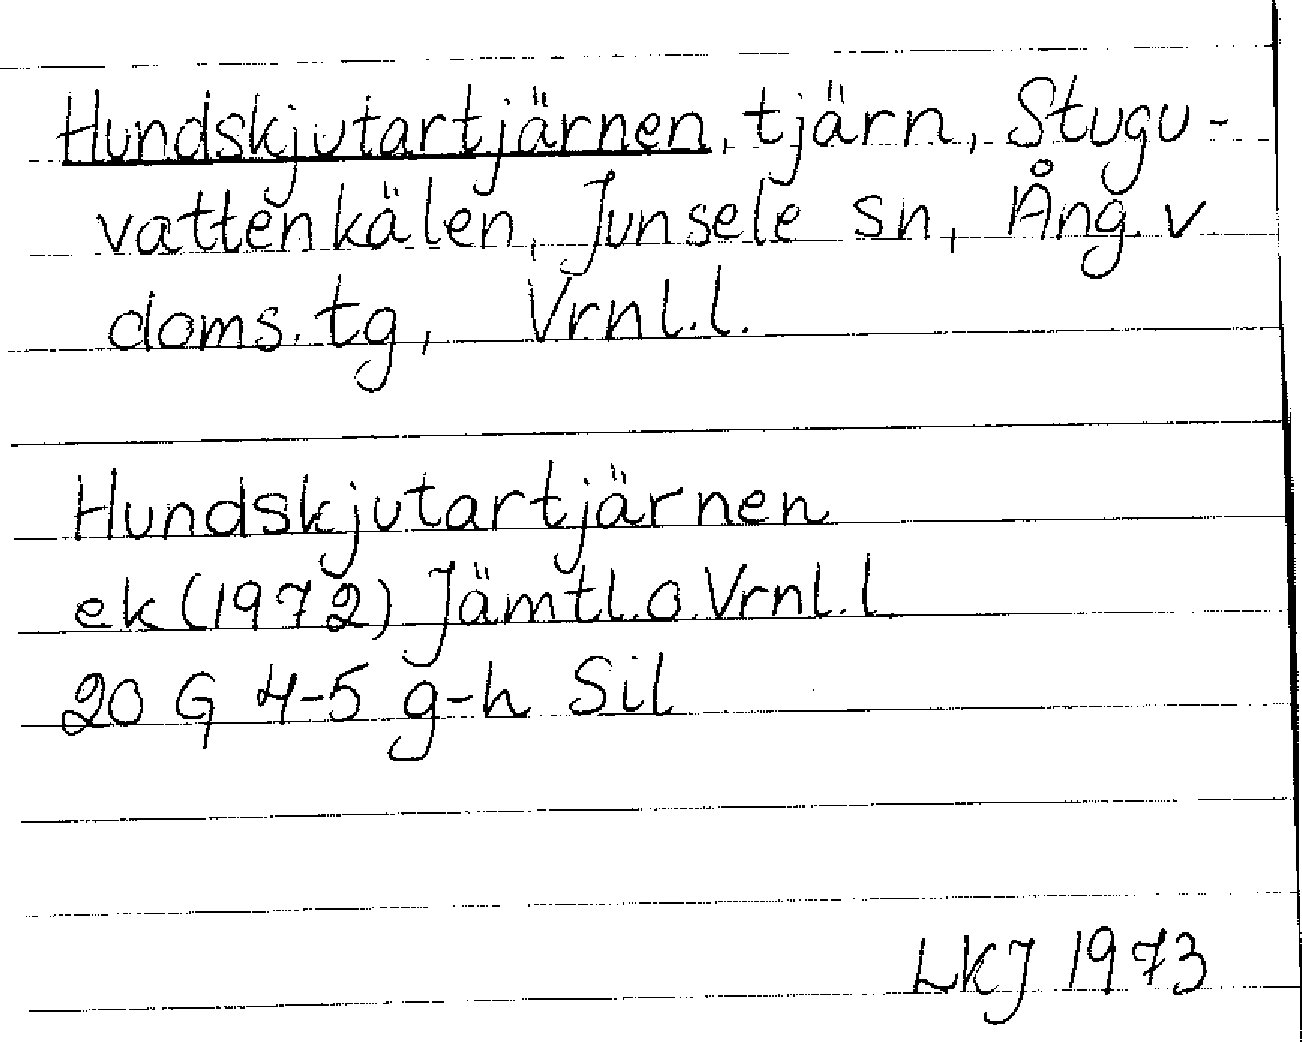 Hundskjutartjärnen, tjärn, Stugu-
vattenkälen, Junsele sn, Ång. v
doms. tg, Vrnl.l.
Hundskjutartjärnen
ek (1972) Jämtl.o.Vrnl.l
20 G 4-5 g-h Sil
LKJ 1973